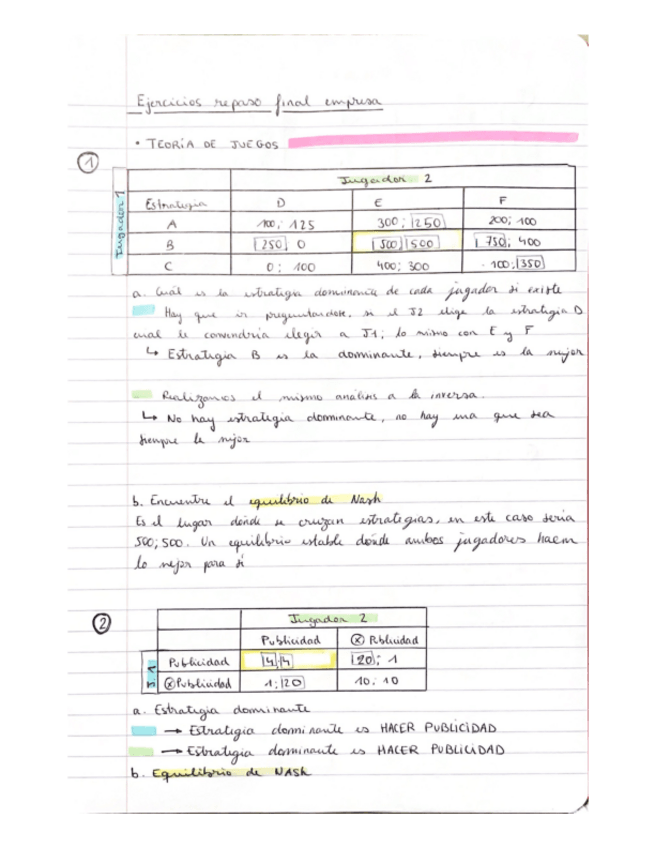 Ejercicios repaso final empresa
• TEORÍA DE JUEGOS
①
Jugador 2
Jugador 1
Estrategia D E F
A 100; 125 300; 250 200; 100
B 250; 0 500; 500 750; 400
C 0; 100 400; 300 -100; 350
a. Cuál es la estrategia dominante de cada jugador si existe
Hay que ir preguntandose, si el J2 elige la estrategia D
cual le convendría elegir a J1; lo mismo con E y F
↳ Estrategia B es la dominante, siempre es la mejor
Realizamos el mismo analisis a la inversa.
↳ No hay estrategia dominante, no hay una que sea
siempre la mejor
b. Encuentre el equilibrio de Nash
Es el lugar donde se cruzan estrategias, en este caso seria
500; 500. Un equilibrio estable donde ambos jugadores hacen
lo mejor para sí
②
Jugador 2
Publicidad ⓧ Publicidad
J1
Publicidad 4; 4 20; 1
ⓧ Publicidad 1; 20 10; 10
a. Estrategia dominante
→ Estrategia dominante es HACER PUBLICIDAD
→ Estrategia dominante es HACER PUBLICIDAD
b. Equilibrio de NASH